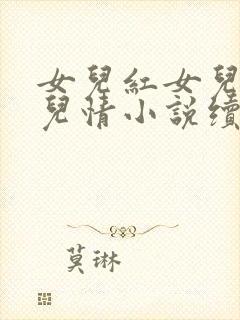 女兒紅女兒
兒情小說續
莫琳